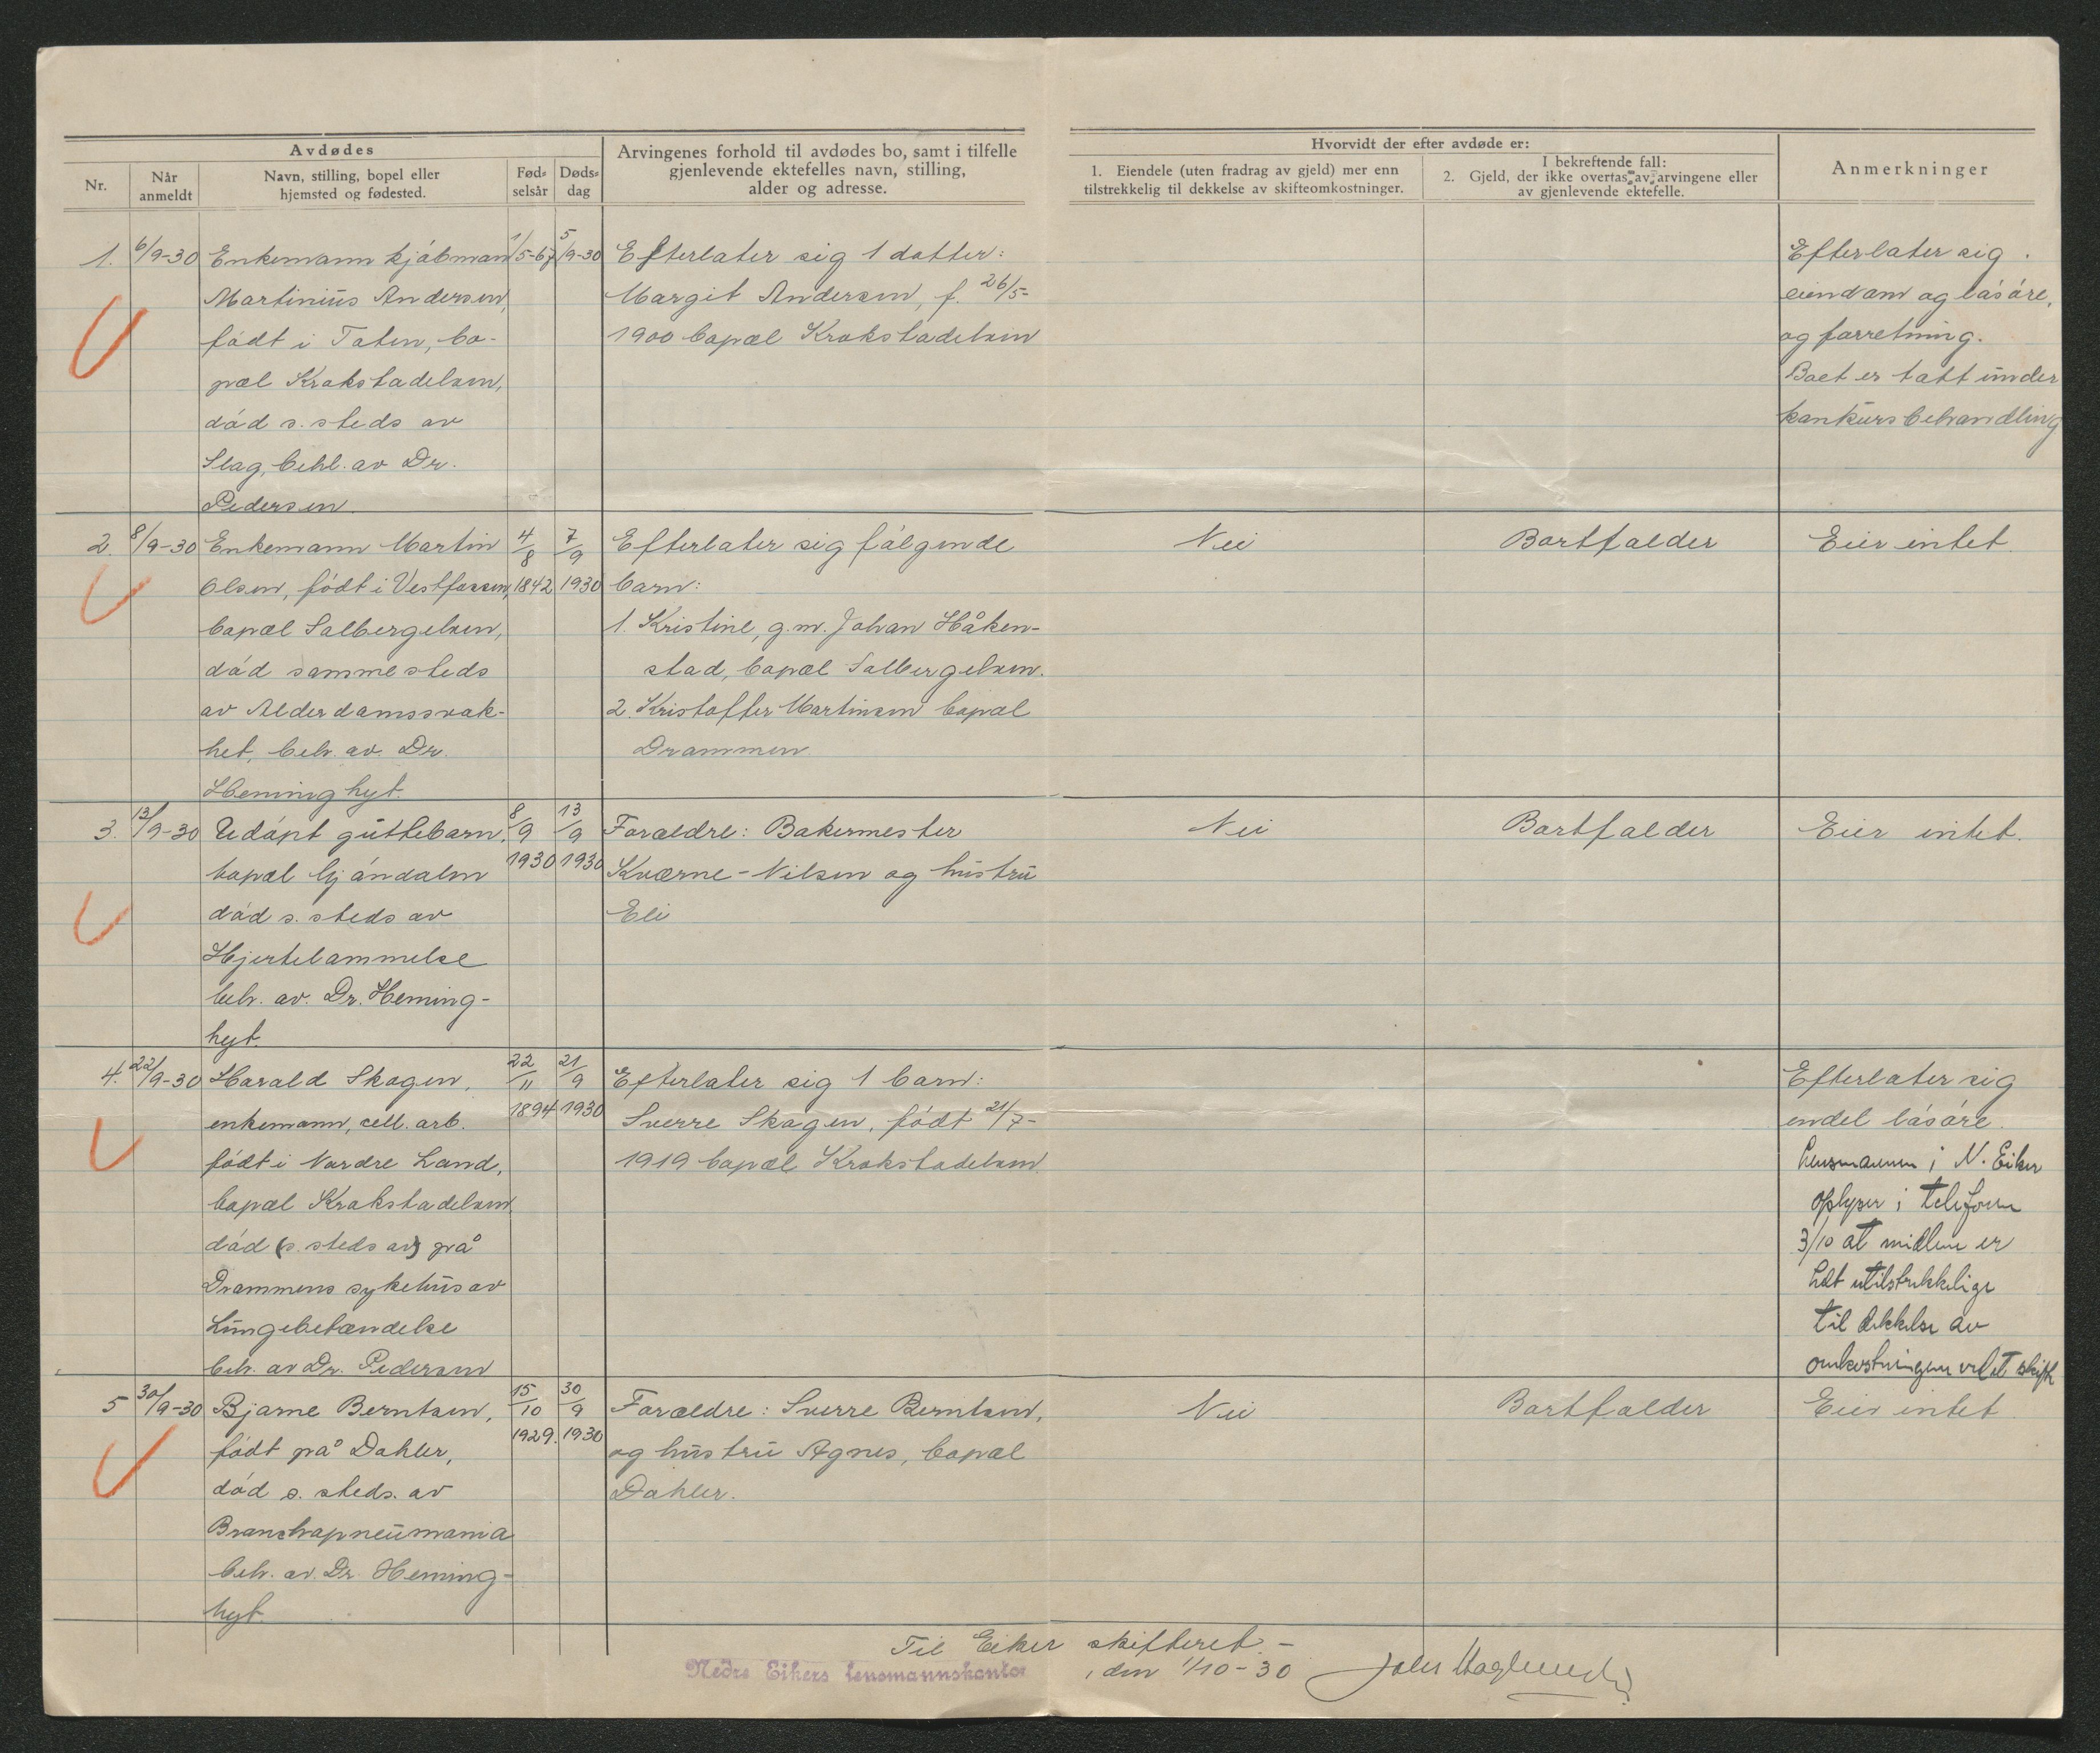 Avdødes
Nr.
Når anmeldt
Navn, stilling, bopel eller
hjemsted og fødested.
Føds=
selsår
Døds=
dag
Arvingenes forhold til avdødes bo, samt i tilfelle
gjenlevende ektefelles navn, stilling,
alder og adresse.
Hvorvidt der efter avdøde er:
1. Eiendele (uten fradrag av gjeld) mer enn
tilstrekkelig til dekkelse av skifteomkostninger.
I bekreftende fall:
2. Gjeld, der ikke overtas av arvingene eller
av gjenlevende ektefelle.
Anmerkninger
1. 6/9-30 Enkemann kjøbmann 1/5-67 5/9-30
Martinius Andersen,
født i Toten, bo-
pæl Krokstadelven,
død s. steds av
Slag, behl. av Dr.
Pedersen.
Efterlater sig 1 datter:
Margit Andersen, f. 26/5-
1900 bopæl Krokstadelven
Efterlater sig
eiendom og løsøre,
og forretning.
Boet er tatt under
konkursbehandling
2. 8/9-30 Enkemann Martin 4/8 7/9
Olsen, født i Vestfossen, 1842 1930
bopæl Solbergelven,
død samme steds
av Alderdomssvak-
het, beh. av Dr.
Heminghyt.
Efterlater sig følgende
barn:
1. Kristine, g.m. Johan Håken-
stad, bopæl Solbergelven.
2. Kristoffer Martinsen bopæl
Drammen.
Nei
Bortfalder
Eier intet.
3. 13/9-30 Udøpt guttebarn, 8/9 13/9
bopæl Gjøndalen 1930 1930
død s. steds av
Hjertelammelse
beh. av. Dr. Heming-
hyt.
Forældre: Bakermester
Kværne-Nilsen og hustru
Eli
Nei
Bortfalder
Eier intet.
4. 22/9-30 Harald Skogen, 22/11 21/9
enkemann, cell. arb. 1894 1930
født i Nordre Land,
bopæl Krokstadelven
død (s. steds av) på
Drammens sykehus av
Lungebetændelse
beh. av Dr. Pedersen
Efterlater sig 1 barn:
Sverre Skogen, født 21/7-
1919 bopæl Krokstadelven.
Efterlater sig
endel løsøre.
Lensmannen i N. Eiker
oplyser i telefon
3/10 at midlene er
helt utilstrekkelige
til dekkelse av
omkostningene ved et skifte
5 30/9-30 Bjarne Berntsen, 15/10 30/9
født på Dahler, 1929. 1930
død s. steds. av
Bronchopneumonia
beh. av. Dr. Heming-
hyt.
Forældre: Sverre Berntsen,
og hustru Agnes, bopæl
Dahler.
Nei
Bortfalder
Eier intet
Til Eiker skifteret -
Nedre Eikers lensmannskontor, den 1/10-30